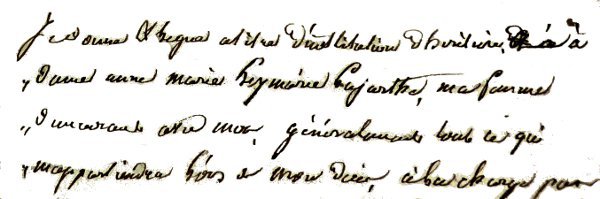 Je donne & legue a titre d'institution d'heritiere, à
„ Dame anne marie Lajarthe, ma femme
„ Demeurant avec moi, généralement tout ce qui
„ m'appartiendra lors de mon décès, à la charge par